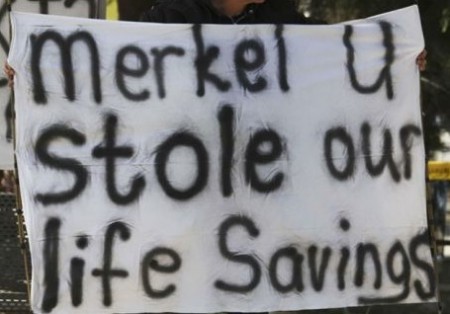 merkel U
stole our
life Savings